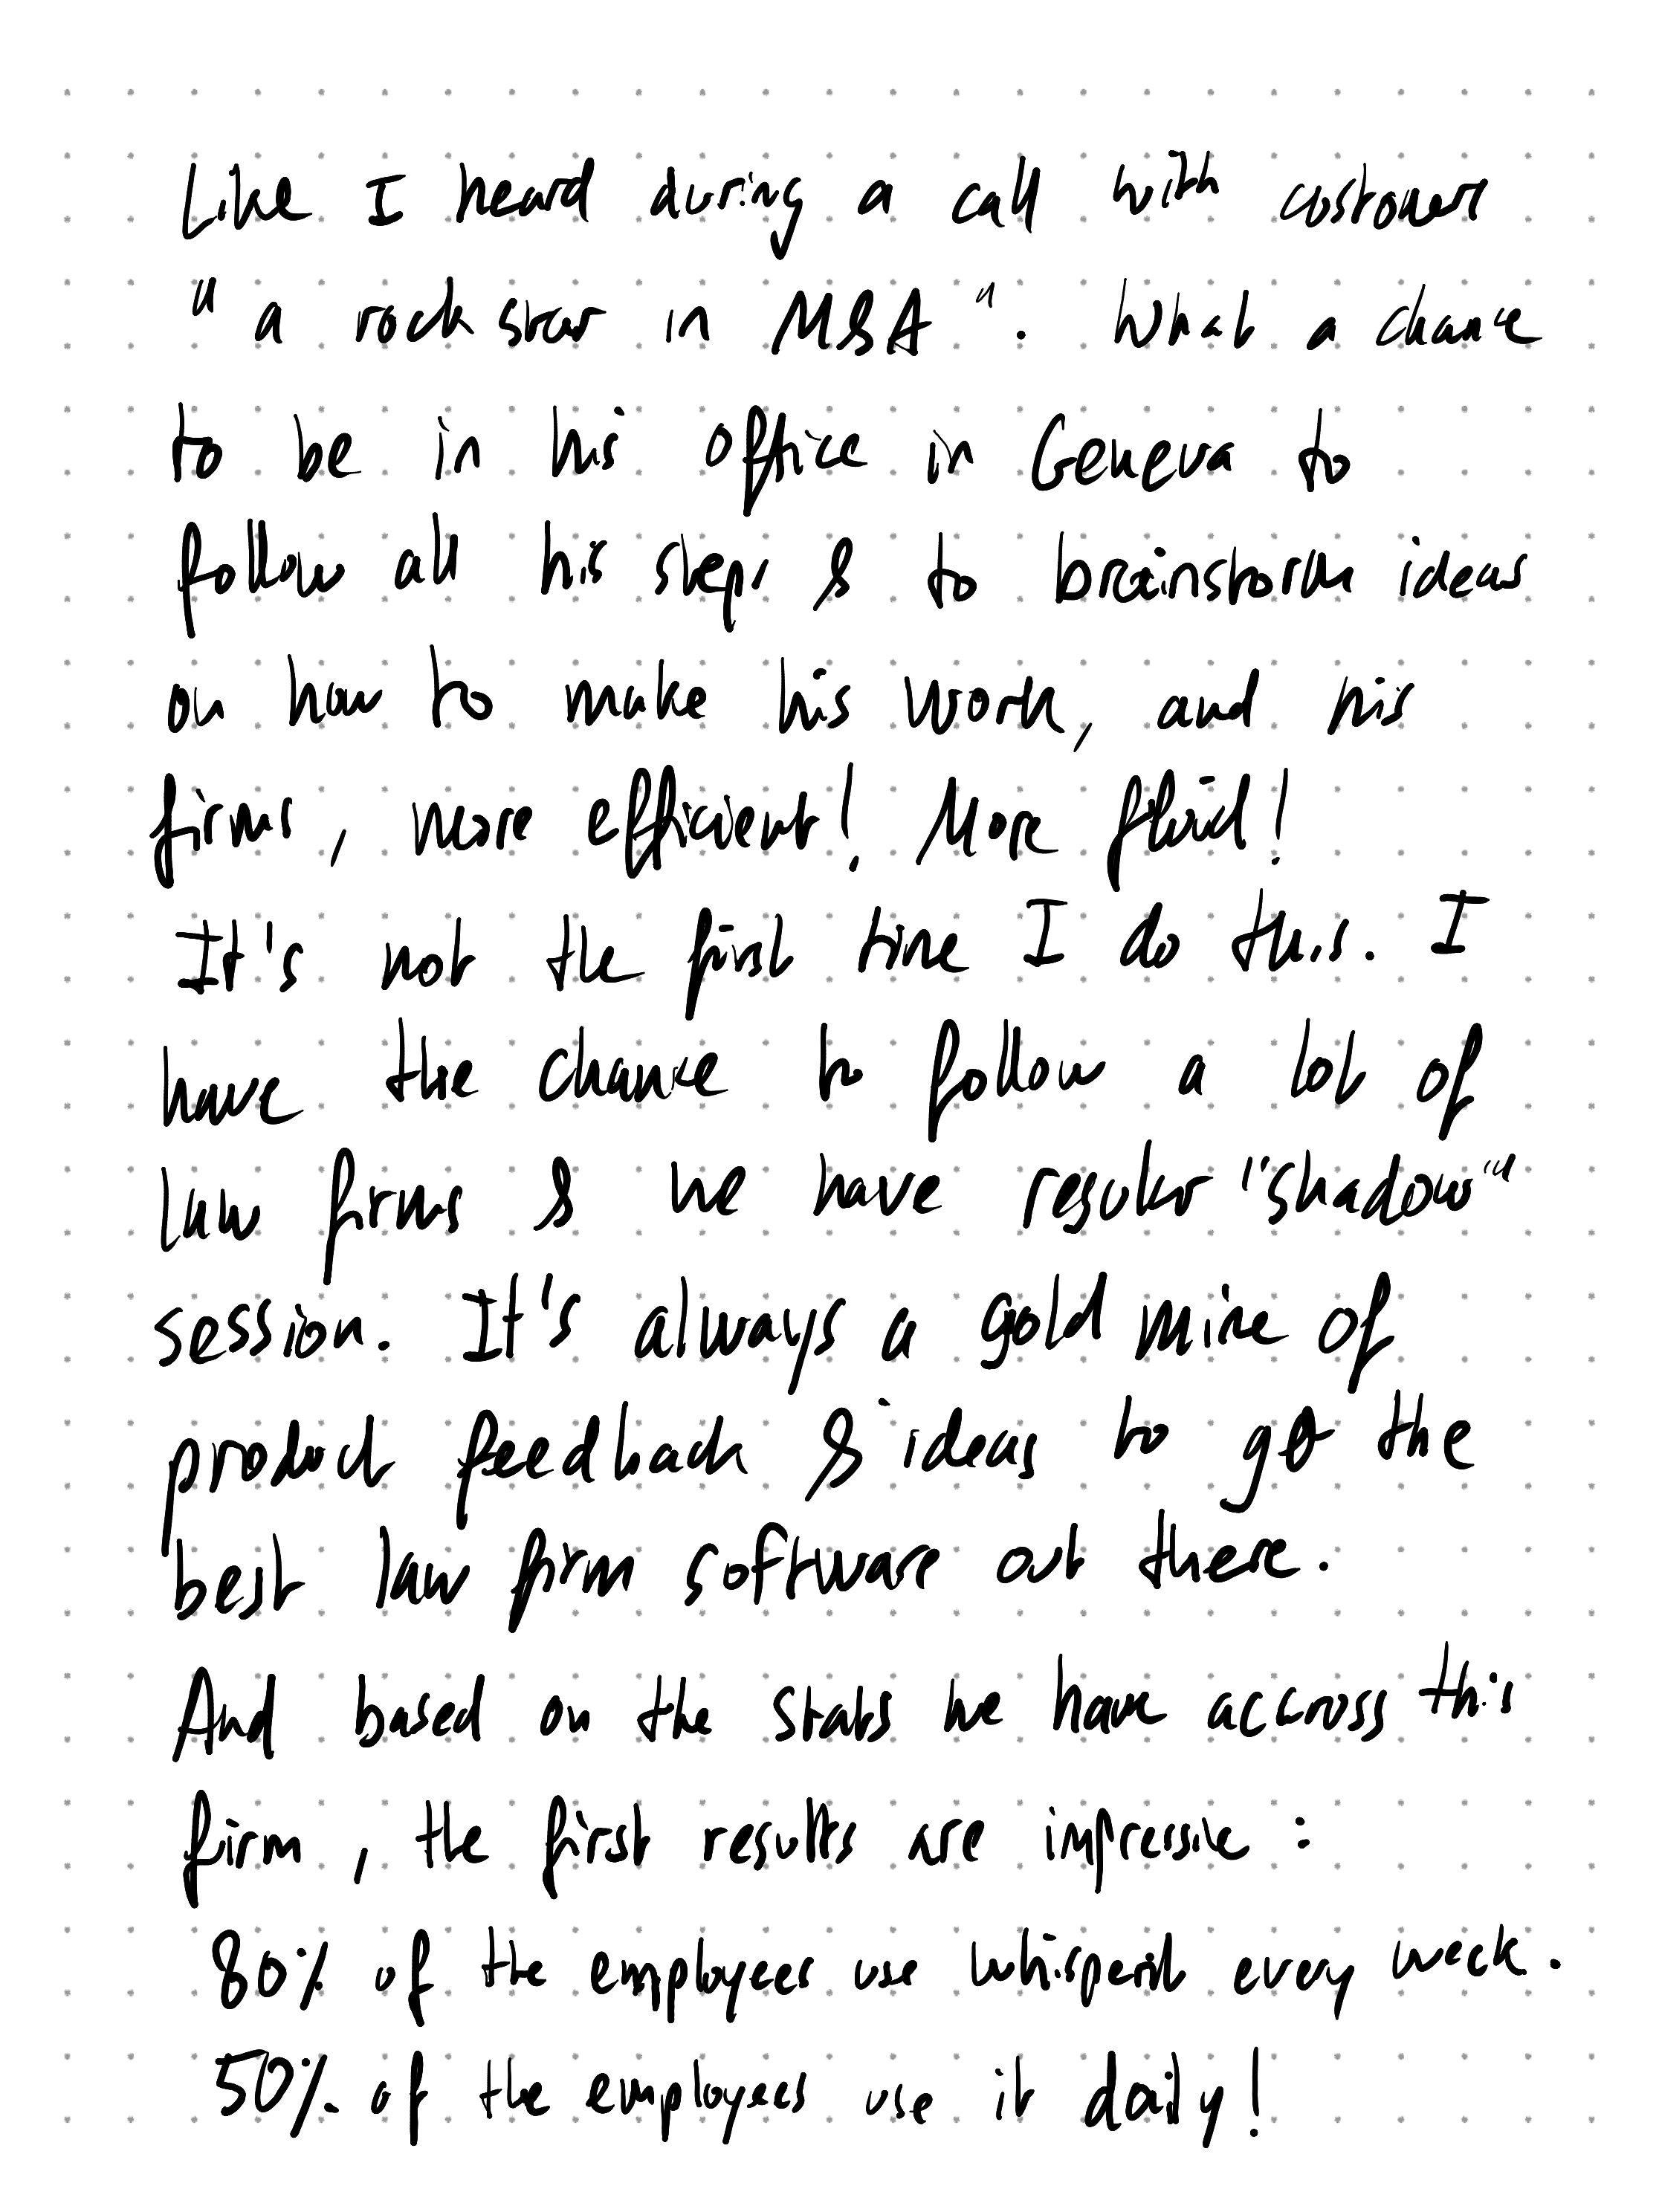 Like I heard during a call with customers
" a rockstar in M&A ". What a chance
to be in his office in Geneva to
follow all his steps & to brainstorm ideas
on how to make his work, and his
firms, more efficient! More fluid!
It's not the first time I do this. I
have the chance to follow a lot of
law firms & we have regular "shadow"
session. It's always a gold mine of
product feedback & ideas to go the
best law firm software out there.
And based on the stats we have accross this
firm, the first results are impressive :
80% of the employees use whisperit every week.
50% of the employees use it daily!